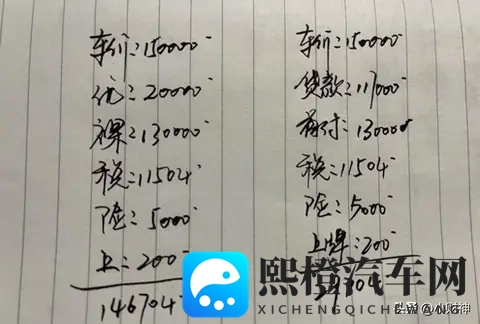 车价:150000
优:20000
裸:130000
税:11504
险:5000
上:200
146704
车价:150000
贷款:117000
首付:13000
税:11504
险:5000
上牌:200
29704
熙橙汽车网
XICHENGQICHEWANG
头条@小财神